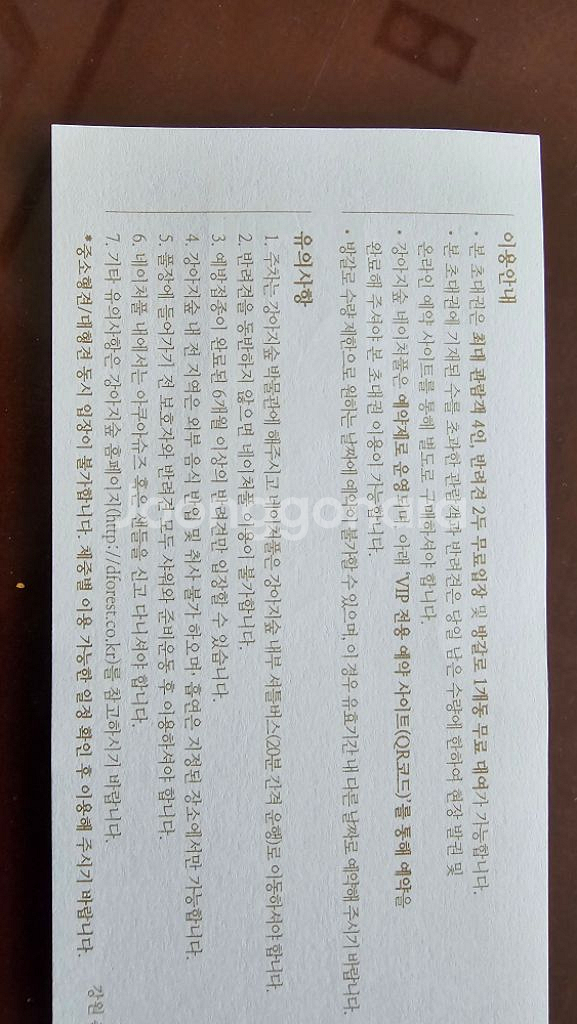 이용안내
• 본 초대권은 최대 관람객 4인, 반려견 2두 무료입장 및 방갈로 1개동 무료 대여가 가능합니다.
• 본 초대권에 기재된 수를 초과한 관람객과 반려견은 당일 남은 수량에 한하여 현장 발권 및
온라인 예약 사이트를 통해 별도로 구매하셔야 합니다.
• 강아지숲 네이처풀은 예약제로 운영되며, 아래 'VIP 전용 예약 사이트(QR코드)'를 통해 예약을
완료해 주셔야 본 초대권 이용이 가능합니다.
• 방갈로 수량 제한으로 원하는 날짜에 예약이 불가할 수 있으며, 이 경우 유효기간 내 다른 날짜로 예약해 주시기 바랍니다.
유의사항
1. 주차는 강아지숲 박물관에 해주시고 네이처풀은 강아지숲 내부 셔틀버스(20분 간격 운행)로 이동하셔야 합니다.
2. 반려견을 동반하지 않으면 네이처풀 이용이 불가합니다.
3. 예방접종이 완료된 6개월 이상의 반려견만 입장할 수 있습니다.
4. 강아지숲 내 전 지역은 외부 음식 반입 및 취사 불가하오며, 흡연은 지정된 장소에서만 가능합니다.
5. 풀장에 들어가기 전 보호자와 반려견 모두 샤워와 준비운동 후 이용하셔야 합니다.
6. 네이처풀 내에서는 아쿠아슈즈 혹은 샌들을 신고 다니셔야 합니다.
7. 기타 유의사항은 강아지숲 홈페이지(http://dforest.co.kr)를 참고하시기 바랍니다.
*중소형견/대형견 동시 입장이 불가합니다. 체중별 이용 가능한 일정 확인 후 이용해 주시기 바랍니다.
강원
Joonggonara